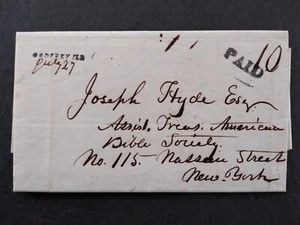 July 27
PAID
10
Joseph Hyde Esq.
Assist. Treas. American
Bible Society
No. 115 Nassau Street
New York